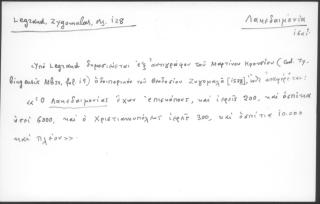 Legrand, Zygomalas, σ. 128
Λακεδαιμόνια
Ὑπὸ Legrand δημοσιεύεται ἐξ ἀντιγράφου τοῦ Μαρτίνου Κρουσίου (cod. Ty-
bingensis Mb 37, fol. 19) ὁδοιπορικὸν τοῦ Θεοδοσίου Ζυγομαλᾶ [1578],
«Ὁ Λακεδαιμονίας ἔχων ἐπισκόπους, καὶ ἱερεῖς 200, καὶ ὀσπίτια
6000, καὶ ὁ Χριστιανουπόλεως ἱερεῖς 300, καὶ ὀσπίτια 10.000
καὶ πλέον».